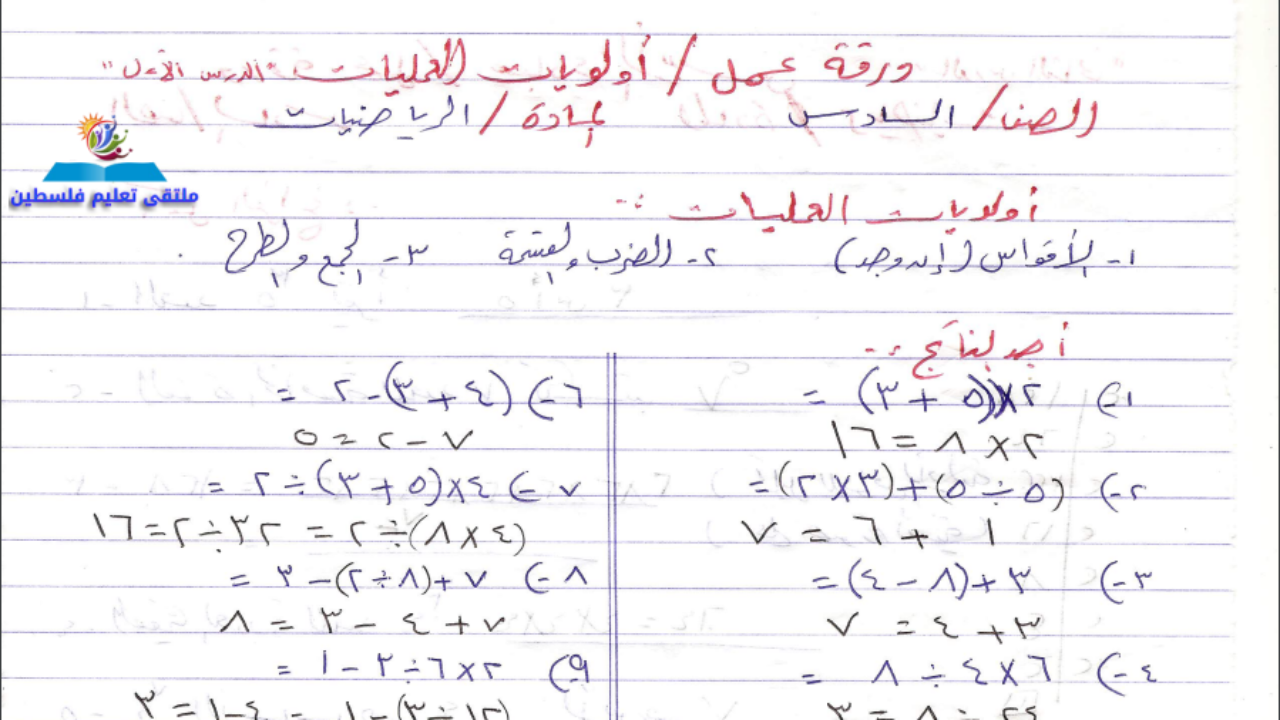 ورقة عمل / أولويات العمليات "الدرس الأول"
الصف / السادس المادة / الرياضيات
ملتقى تعليم فلسطين
أولويات العمليات :
١- الأقواس (إن وجد) ٢- الضرب والقسمة ٣- الجمع والطرح .
أجد الناتج :
١-) ٢×(٥ + ٣) =
٢ × ٨ = ١٦
٢-) (٥ ÷ ٥)+(٣×٢)=
١ + ٦ = ٧
٣-) ٣+(٨ – ٤)=
٣+٤ = ٧
٤-) ٦×٤ ÷ ٨ =
٢٤ ÷ ٨ = ٣
٦-) (٤ + ٣)–٢ =
٧ – ٢ = ٥
٧-) ٤×(٥+٣)÷٢ =
(٤×٨)÷٢ = ٣٢÷٢=١٦
٨-) ٧+(٨÷٢)– ٣ =
٧+٤ – ٣ = ٨
٩) ٢×٦÷٣ – ١ =
(١٢÷٣) – ١ = ٤–١ = ٣